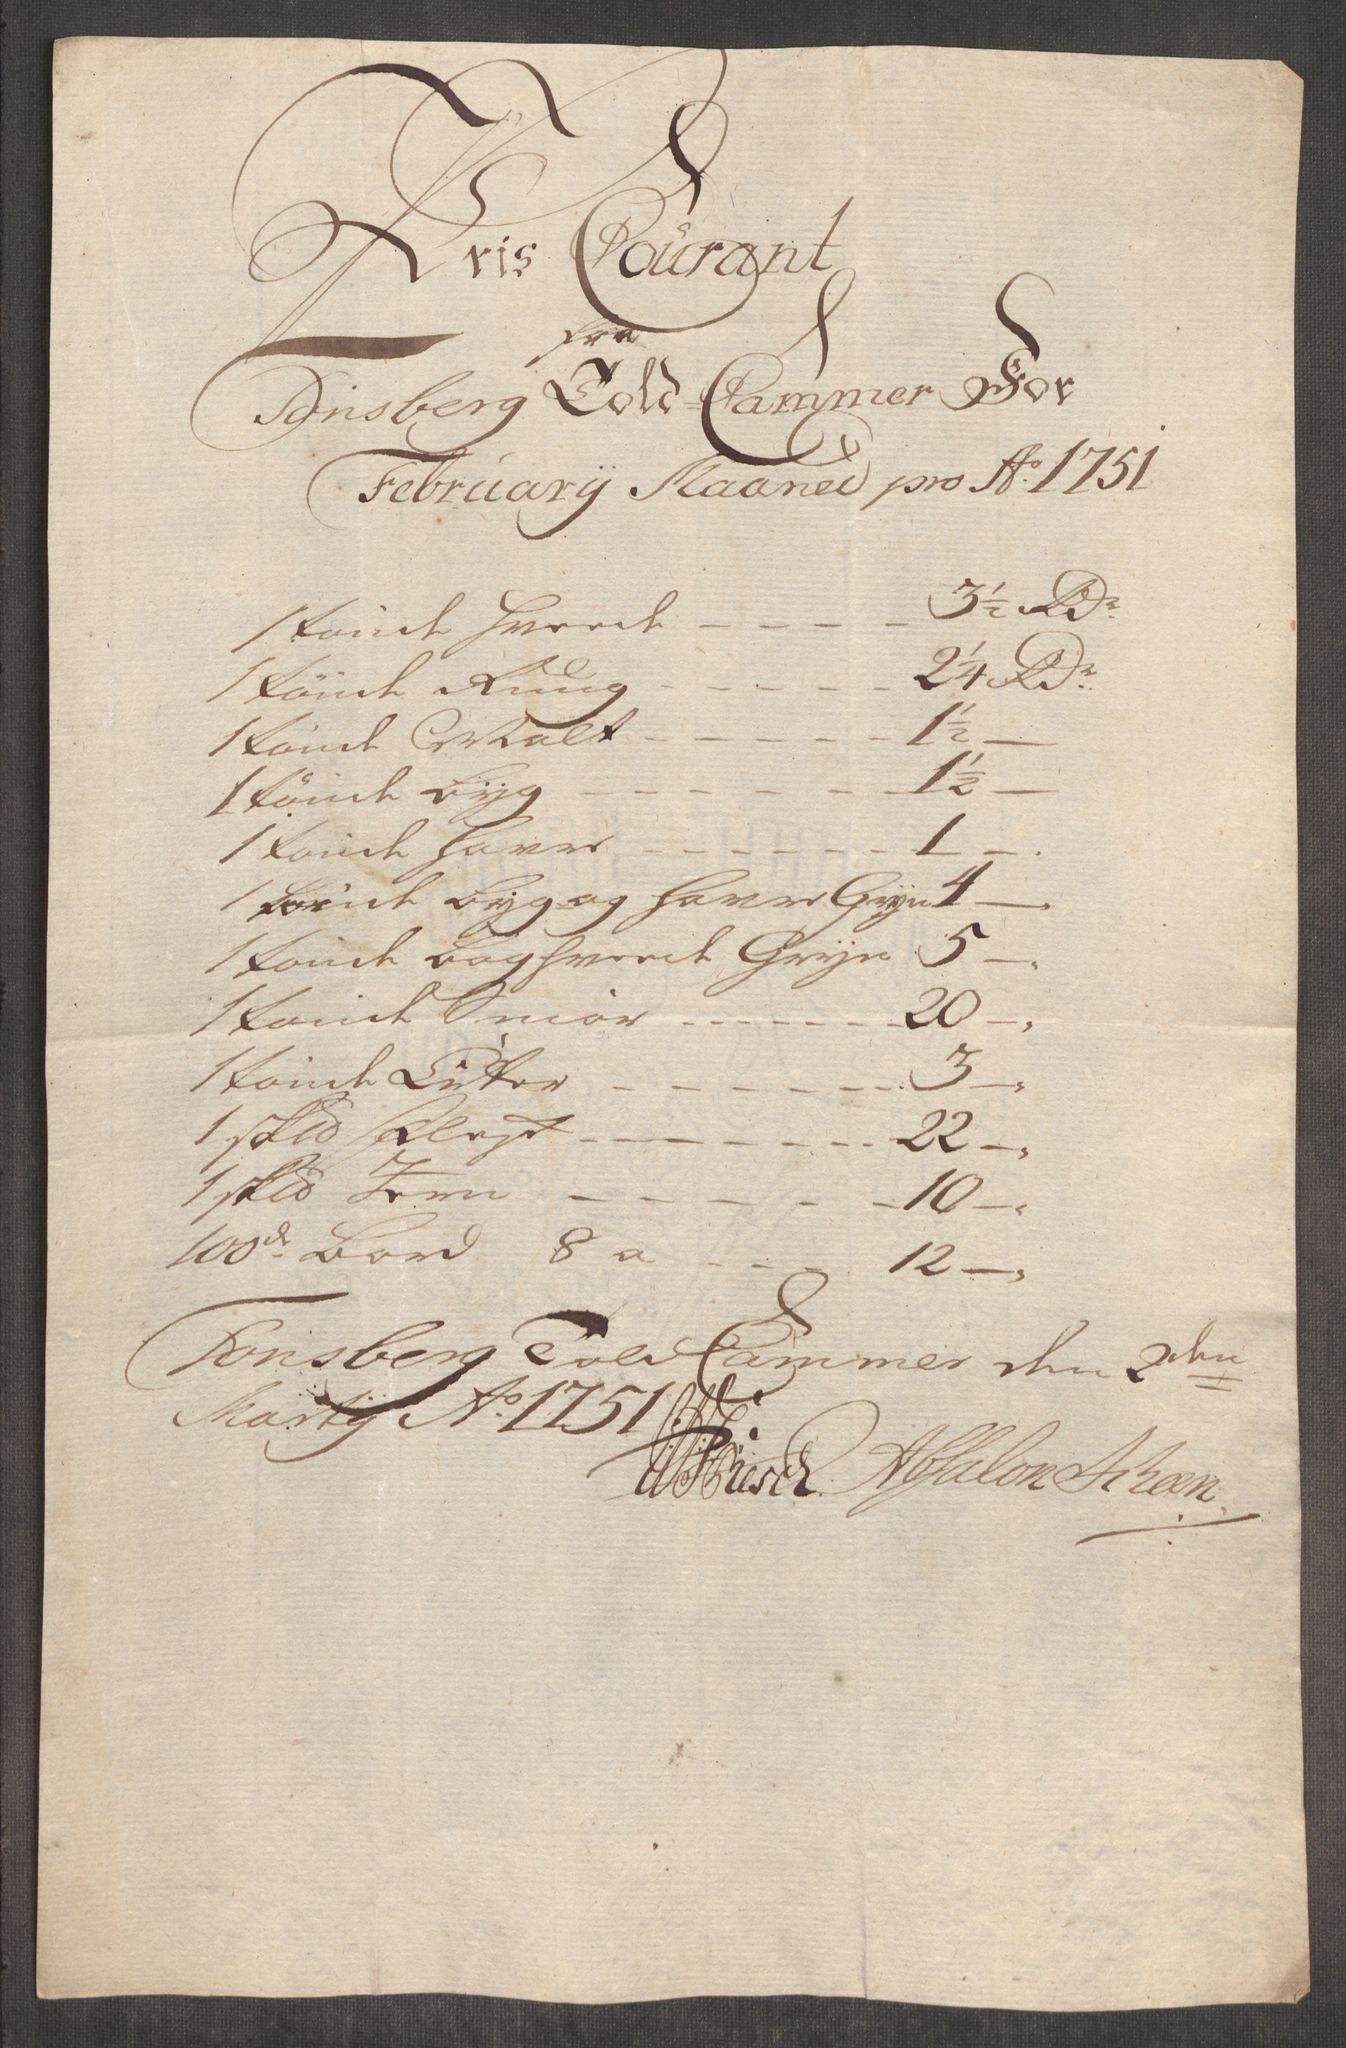 Pris Courant
fra
Tønsberg Told-Cammer For
Februarij Maaned pro Ao. 1751
1 tønde hvede - - - - - 3½ Rdr.
1 tønde Rüug - - - - - 2¼ Rdr.
1 tønde Malt - - - - - 1½ —
1 tønde Byg - - - - - - 1½ —
1 tønde havre - - - - - - 1 —.
1 tønde byg og havre Gryn 4 —.
1 tønde boghvede Gryn 5 —.
1 tønde Smør - - - - - - 20 —.
1 tønde - - - - - - 3 —.
1 sk℔ - - - - - - 22 —.
1 sk℔ Jern - - - - - 10 —.
100de. Bord 8 a - - - - 12 —.
Tønsberg Told Cammer den 2den
Martij Ao. 1751
Absalon